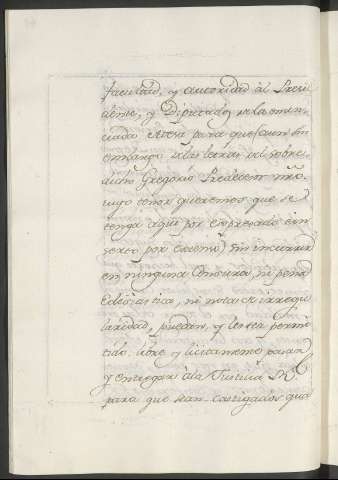 facultad, y autoridad àl Presi
dente, y Diputados de la enun
ciada Mesa para que (aun sin
embargo de las letras del sobre
dicho Gregorio Predecesor nr̃o
cuyo tenor queremos que se
tenga aqui por expresado è in
serto por extenso) sin incurrir
en ninguna Censura, ni pena
Eclesiastica, ni nota de irregu
laridad, puedan, y les sea permi
tido, libre y licitamente pasar
y entregar àla Justicia Rl.
para que sean castigados qua